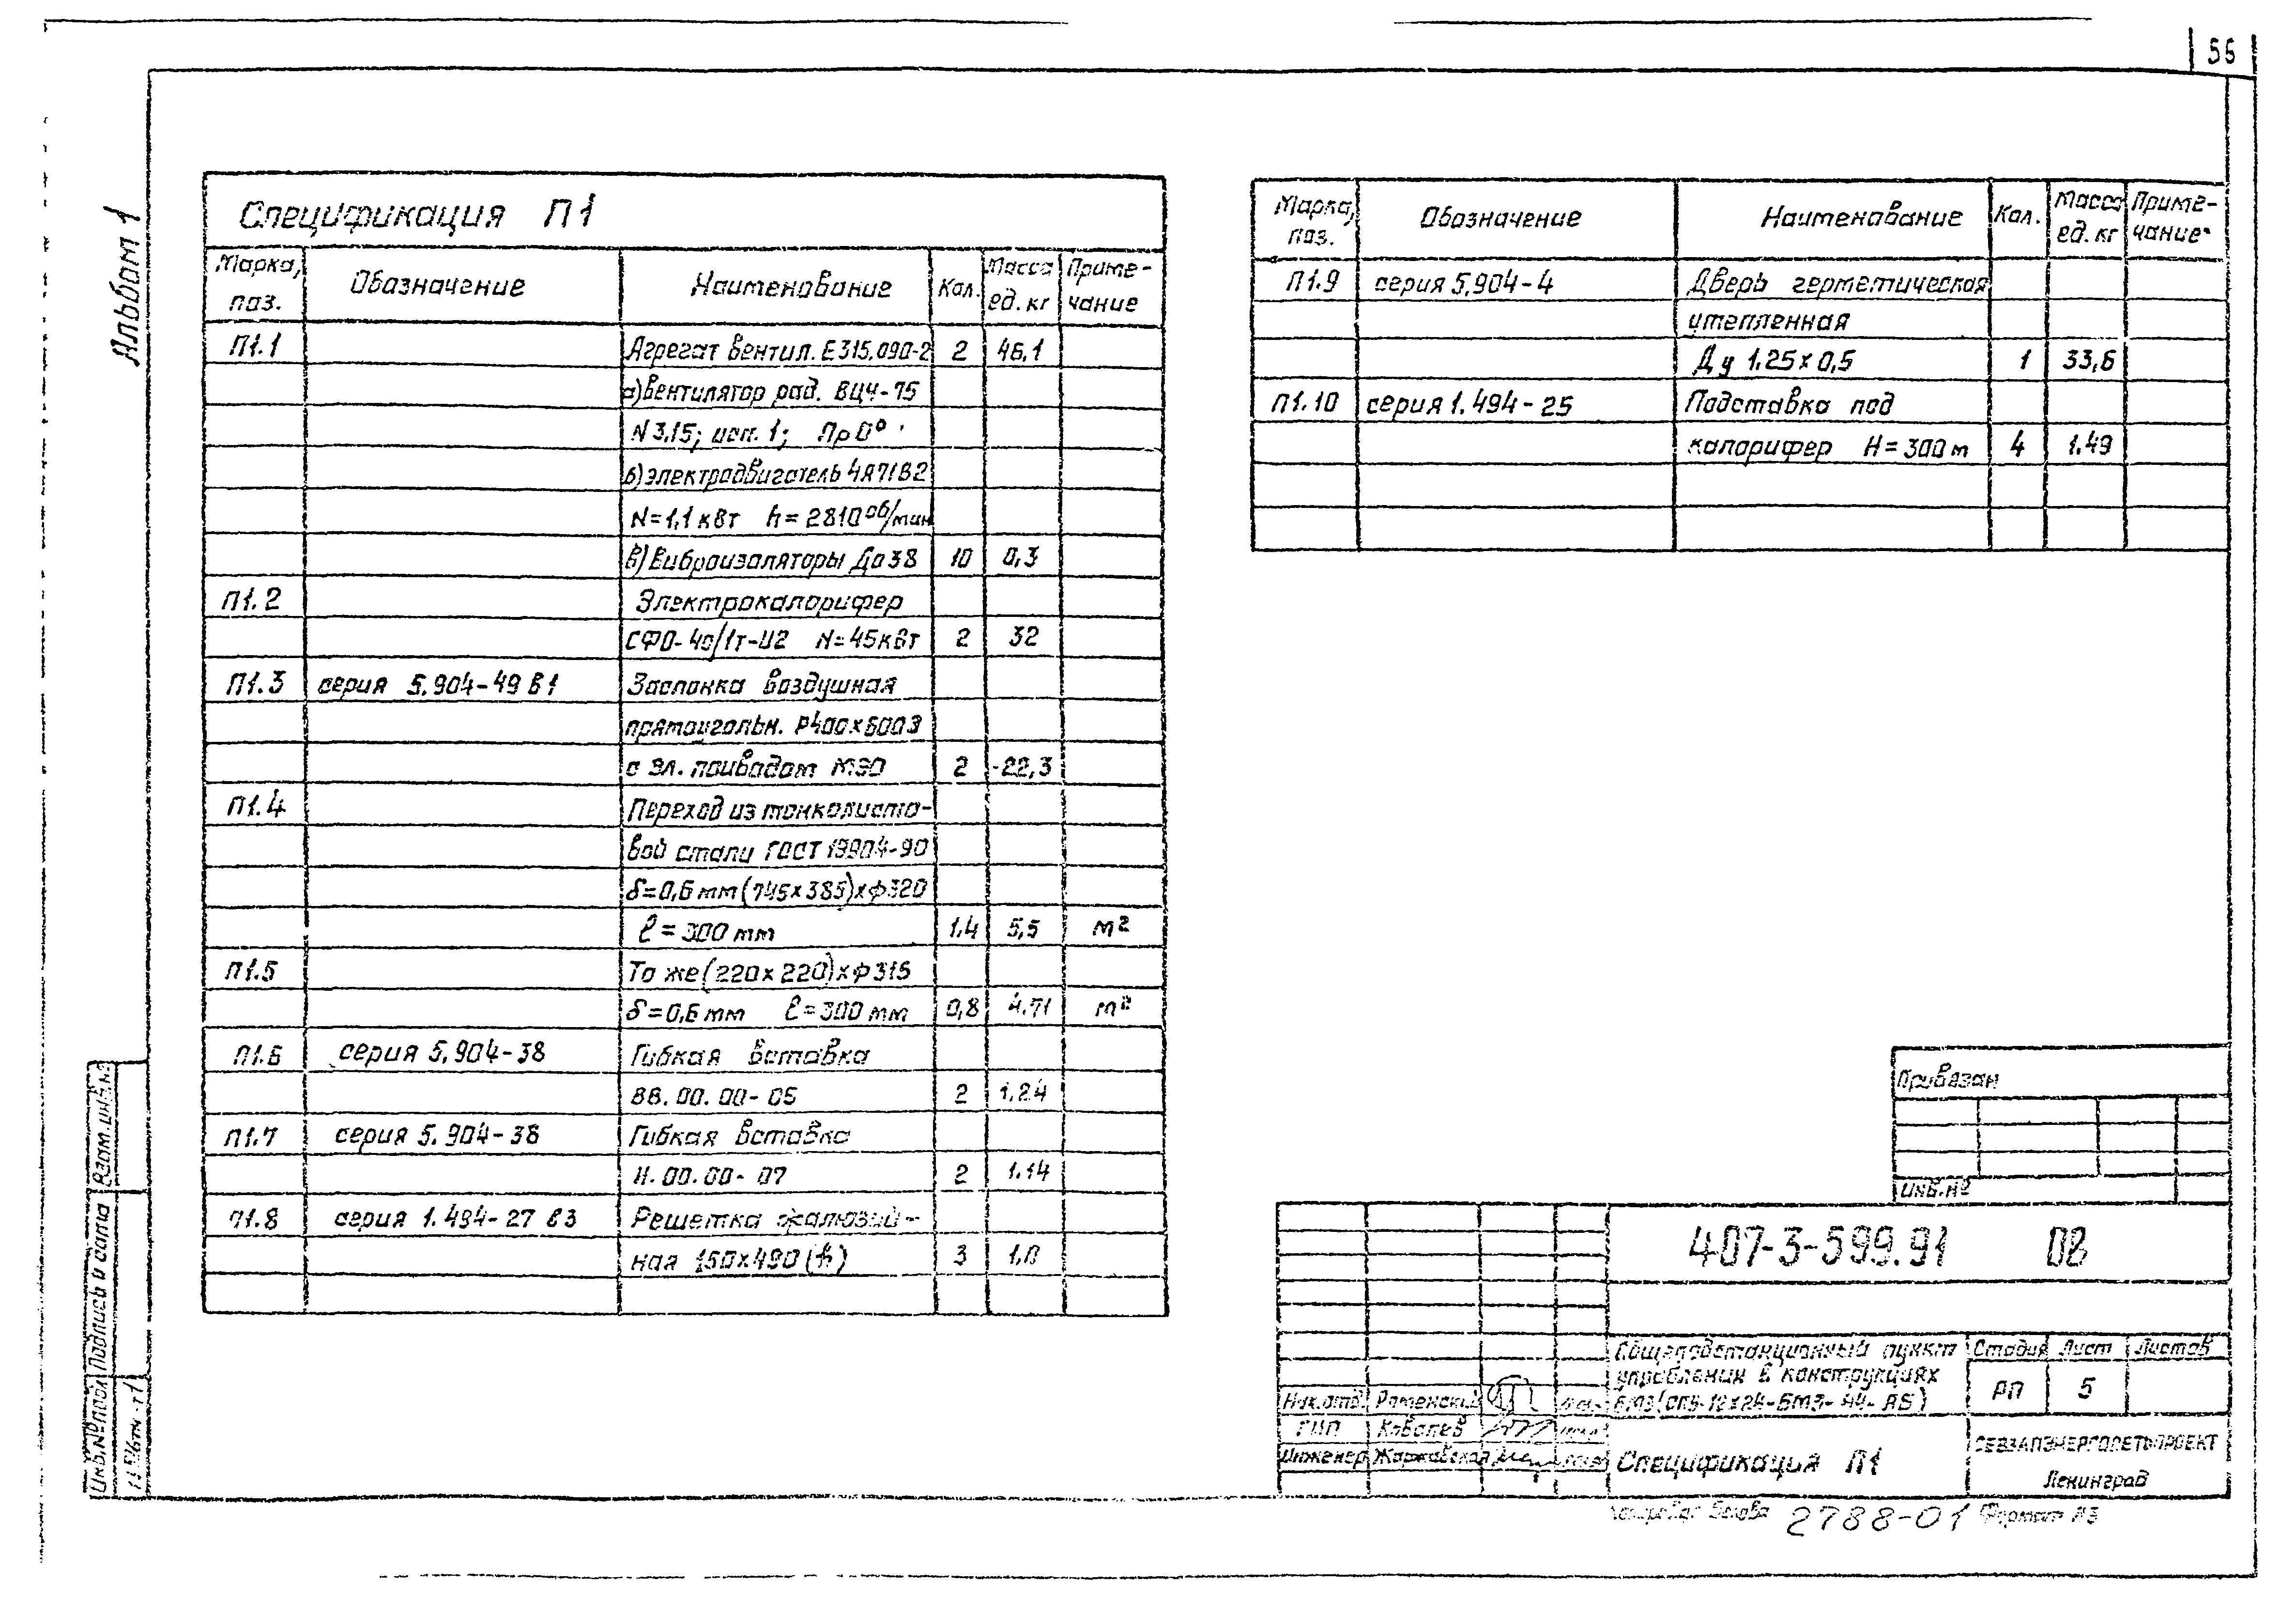 55
Альбом 1
Спецификация П1
Марка, поз. Обозначение Наименование Кол. Масса ед. кг Приме-чание
П1.1 Агрегат вентил. Е315.090-2 2 46,1
а) Вентилятор рад. ВЦ4-75
N 3,15; исп. 1; Пр 0°
б) электродвигатель 4А71В2
N=1,1 кВт n=2810 об/мин
в) Виброизоляторы До 38 10 0,3
П1.2 Электрокалорифер
СФО-40/1т-И2 N=45 кВт 2 32
П1.3 серия 5.904-49 В1 Заслонка воздушная
прямоугольн. Р400х600Э
с эл. приводом МЭО 2 22,3
П1.4 Переход из тонколисто-
вой стали ГОСТ 19904-90
δ=0,6 мм (745х385)хф320
ℓ=300 мм 1.4 5,5 м²
П1.5 То же (220х220)хф315
δ=0,6 мм ℓ=300 мм 0,8 4.71 м²
П1.6 серия 5.904-38 Гибкая вставка
ВВ.00.00-05 2 1.24
П1.7 серия 5.904-38 Гибкая вставка
Н.00.00-07 2 1.14
П1.8 серия 1.494-27 В3 Решетка жалюзий-
ная 150х490(h) 3 1.0
Марка, поз. Обозначение Наименование Кол. Масса ед. кг Приме-чание
П1.9 серия 5.904-4 Дверь герметическая
утепленная
Ду 1.25х0,5 1 33,6
П1.10 серия 1.494-25 Подставка под
калорифер Н=300м 4 1.49
Привязан
Инв.№
407-3-599.91 ОВ
Общеподстанционный пункт
управления в конструкциях
БМЗ (ОПУ-12х24-БМЗ-А4-АБ)
Стадия Лист Листов
РП 5
Нач.отд. Роменский
ГИП Ковалев
Инженер Жарковская
Спецификация П1
СЕВЗАПЭНЕРГОСЕТЬПРОЕКТ
Ленинград
Копировал Белова 2788-01 Формат А3
Взам.инв.№
Подпись и дата
Инв.№ подл.